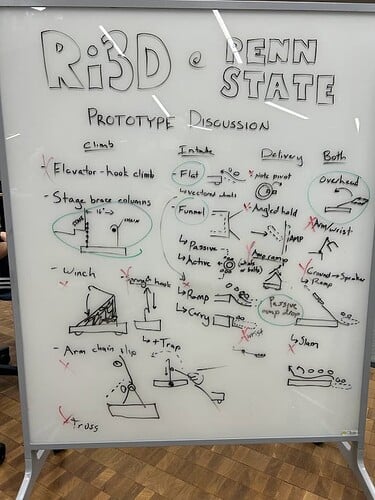 Ri3D @ PENN STATE
PROTOTYPE DISCUSSION
Climb
Elevator-hook climb
- Stage brace columns
16"
- Winch
- Arm chain flip
Truss
Intake
- Flat
↳vectored wheels
- Funnel
↳ Passive
↳ Active
↳ Ramp
↳ Carry
↳ + Trap
Delivery
Note pivot
Angled hold
AMP
Amp cam
Passive amp drop
Both
Overhead
Arm/wrist
Ground → Speaker
↳ Ramp
↳ Slam